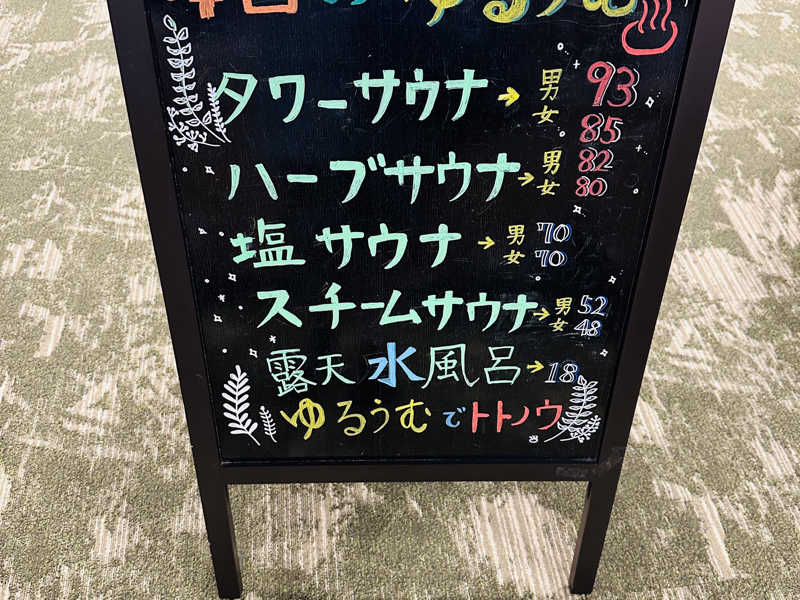 本日のゆるうむ♨
タワーサウナ→男 93
女 85
ハーブサウナ→男 82
女 80
塩サウナ→男 70
女 70
スチームサウナ→男 52
女 48
露天水風呂→18
ゆるうむでトトノウ